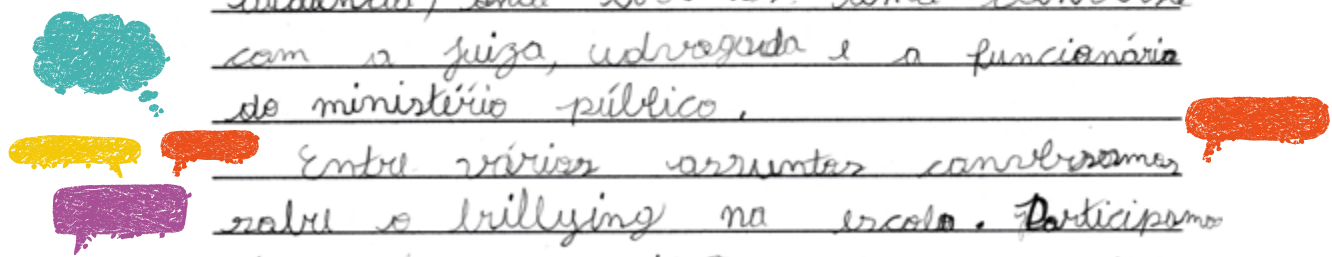 com a juiza, udvogada e a funcionária
do ministério público.
Entre vários assuntos conversamos
sobre o brillying na escola. Participamos